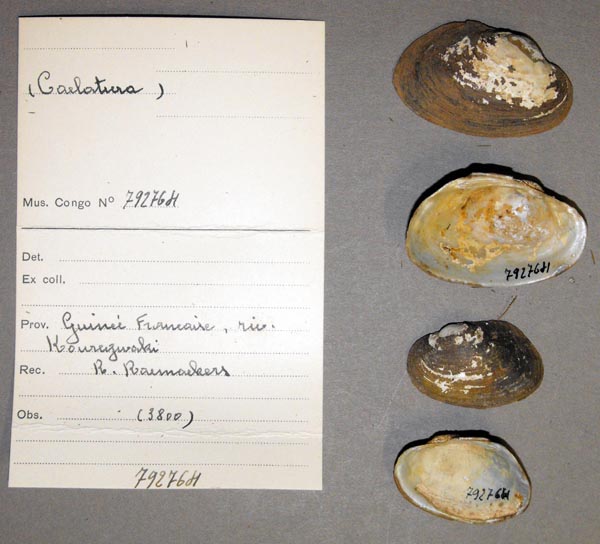 ( Caelatura )
Mus. Congo Nº 792761
Det.
Ex coll.
Prov. Guinée Francaise, riv.
Rec. R. Ramaekers
Obs. (3800)
792761
792761
792761